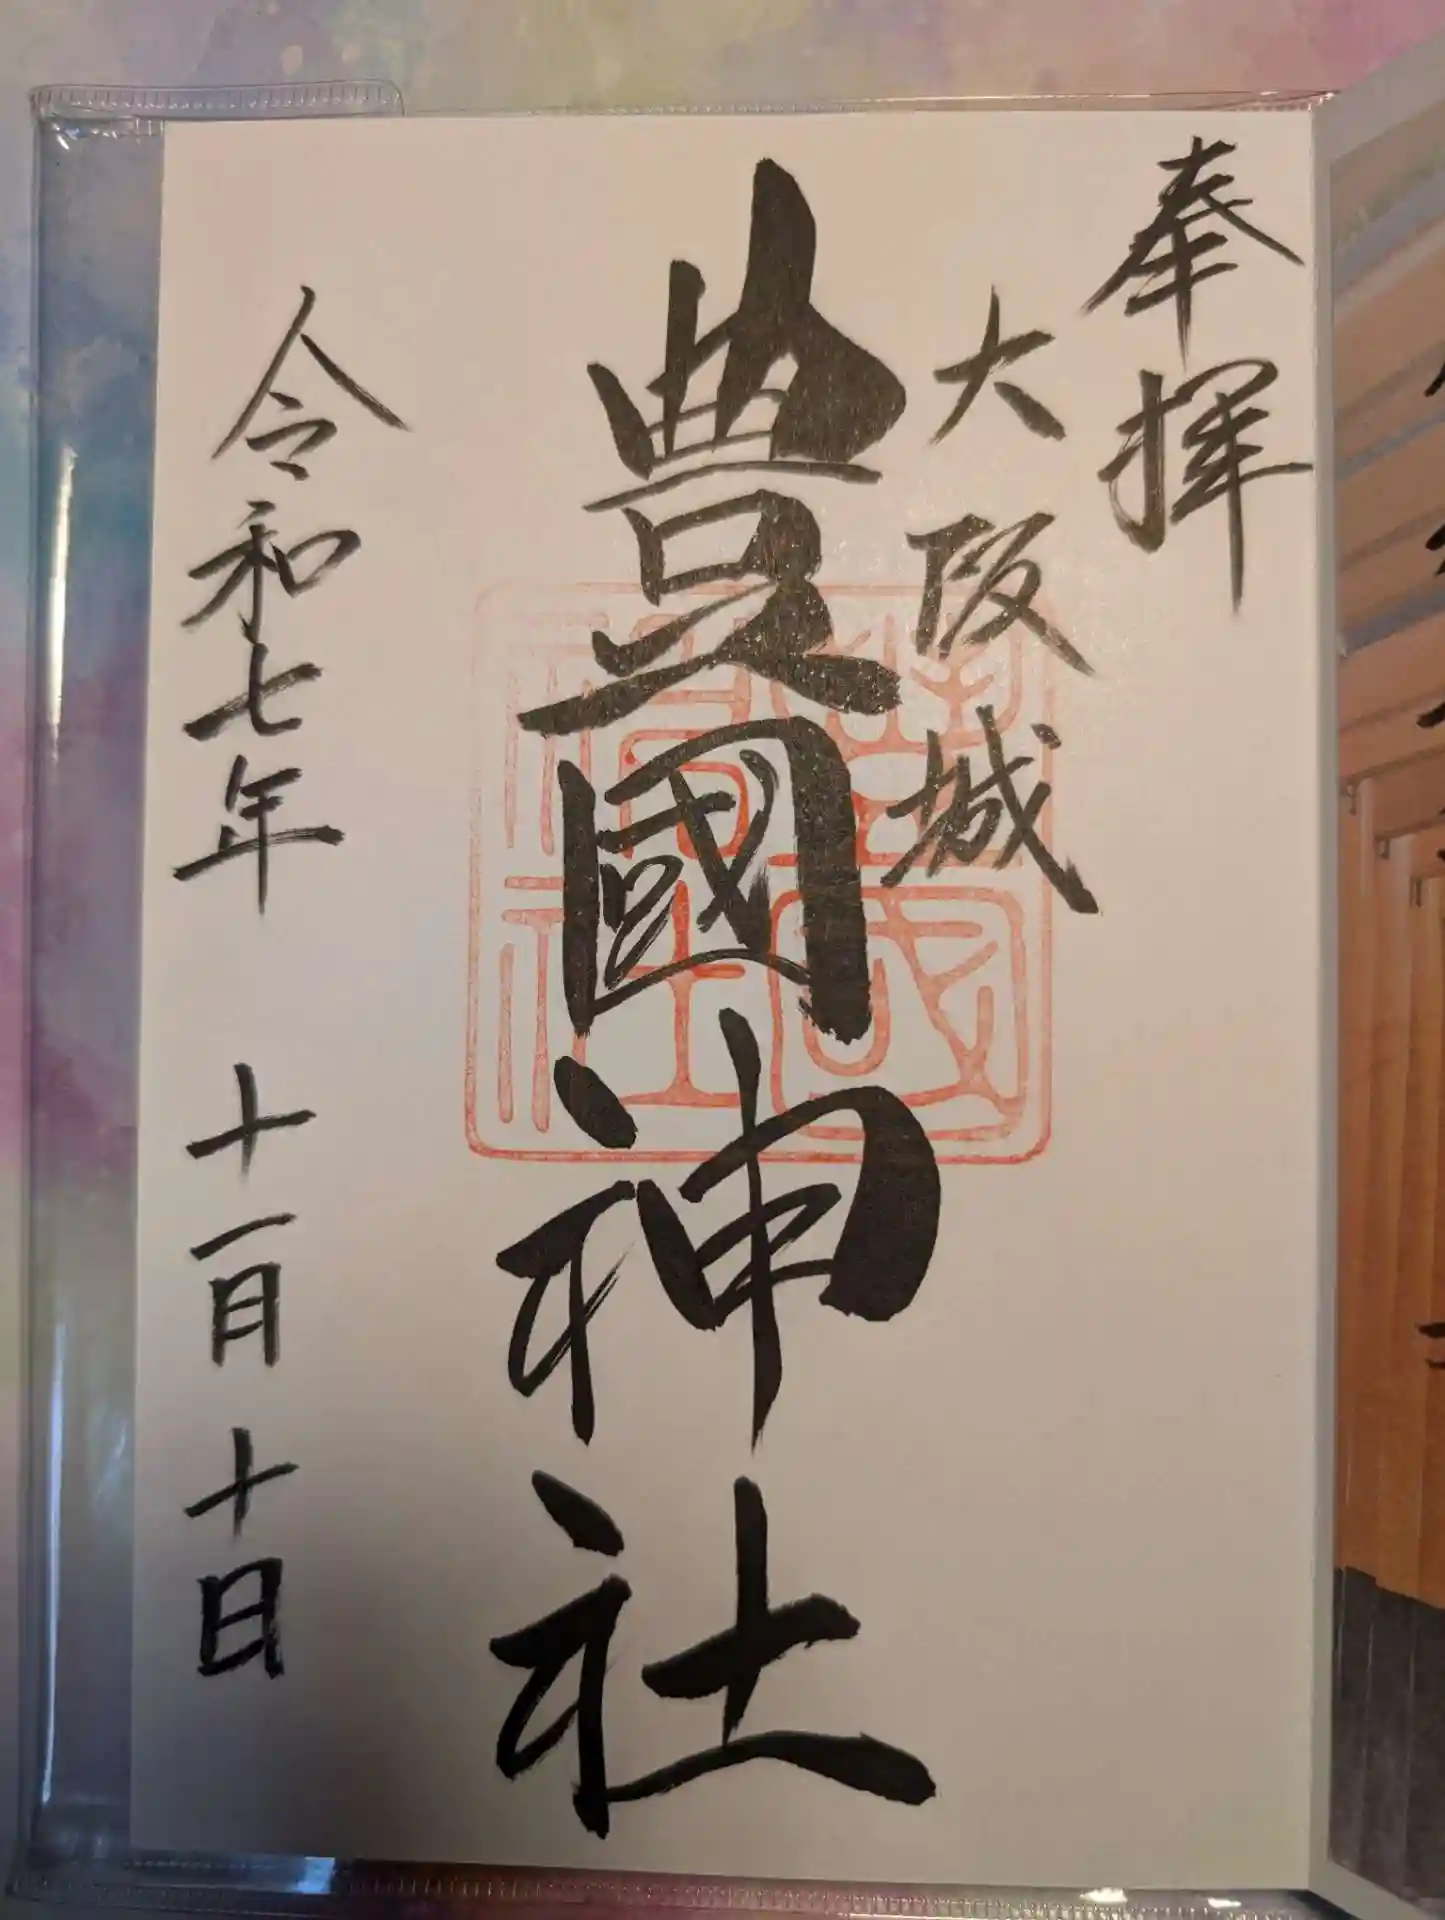 奉拝
大阪城
豊國神社
令和七年 十一月 十日